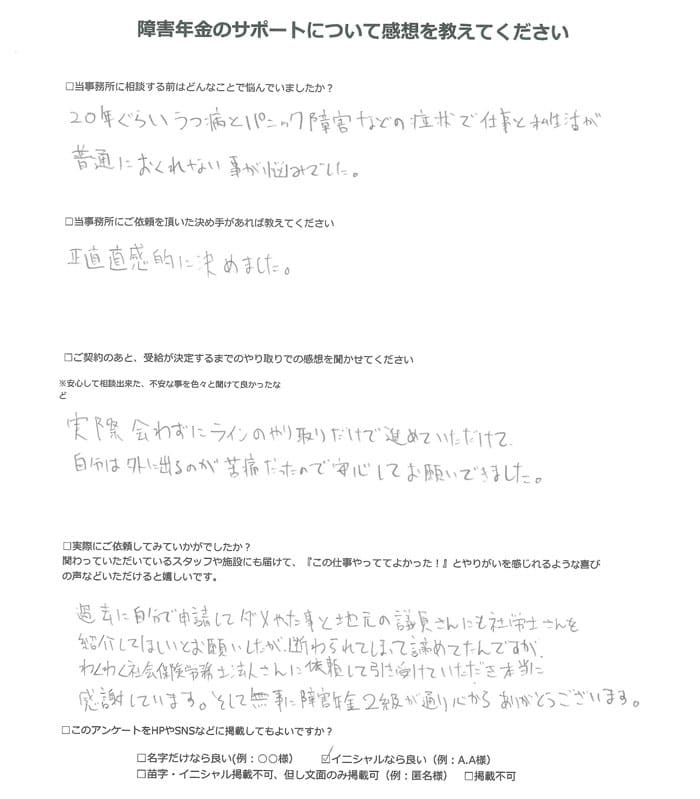 障害年金のサポートについて感想を教えてください
□当事務所に相談する前はどんなことで悩んでいましたか？
20年ぐらいうつ病とパニック障害などの症状で仕事と私生活が
普通におくれない事が悩みでした。
□当事務所にご依頼を頂いた決め手があれば教えてください
正直直感的に決めました。
□ご契約のあと、受給が決定するまでのやり取りでの感想を聞かせてください
※安心して相談出来た、不安な事を色々と聞けて良かったな
ど
実際会わずにラインのやり取りだけで進めていただけて、
自分は外に出るのが苦痛だったので安心してお願いできました。
□実際にご依頼してみていかがでしたか？
関わっていただいているスタッフや施設にも届けて、『この仕事やっててよかった！』とやりがいを感じれるような喜び
の声などいただけると嬉しいです。
過去に自分で申請してダメやた事と地元の議員さんにも社労士さんを
紹介してほしいとお願いしたが、断わられてしまって諦めてたんですが、
わくわく社会保険労務士法人さんに依頼して引き受けていただき本当に
感謝しています。そして無事に障害年金2級が通り心からありがとうございます。
□このアンケートをHPやSNSなどに掲載してもよいですか？
□名字だけなら良い(例：○○様)　☑イニシャルなら良い（例：A.A様）
□苗字・イニシャル掲載不可、但し文面のみ掲載可（例：匿名様）　□掲載不可